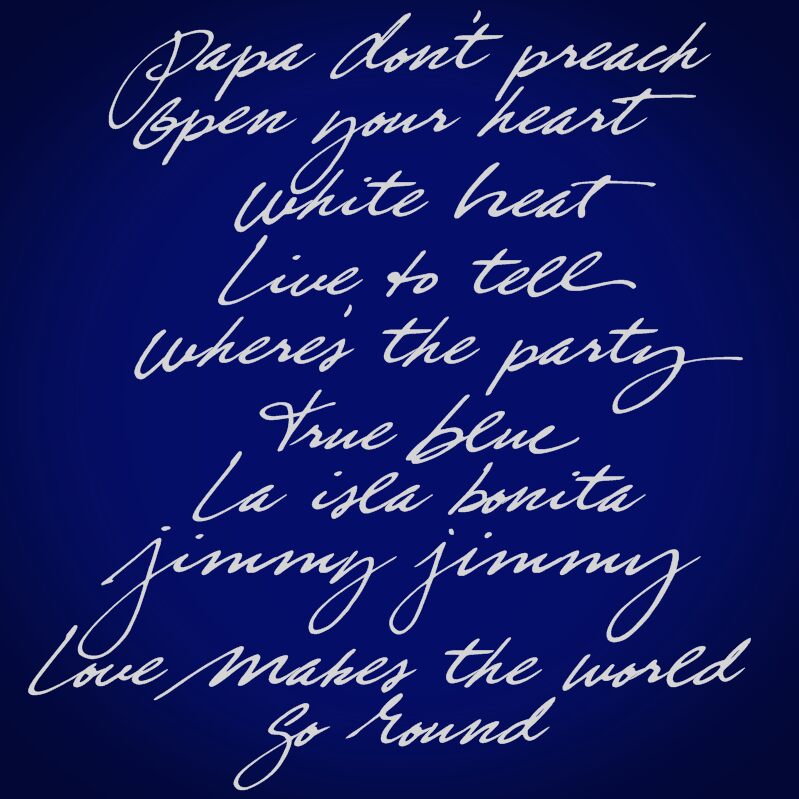 Papa don't preach
Open your heart
White heat
Live to tell
Where's the party
True blue
La isla bonita
Jimmy jimmy
Love makes the world
go round